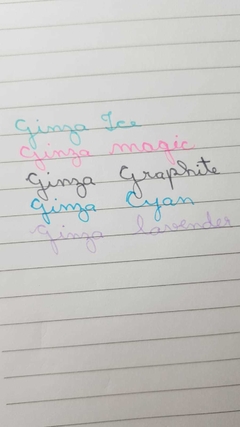 Ginza Ice
Ginza magic
Ginza Graphite
Ginza Cyan
Ginza lavender